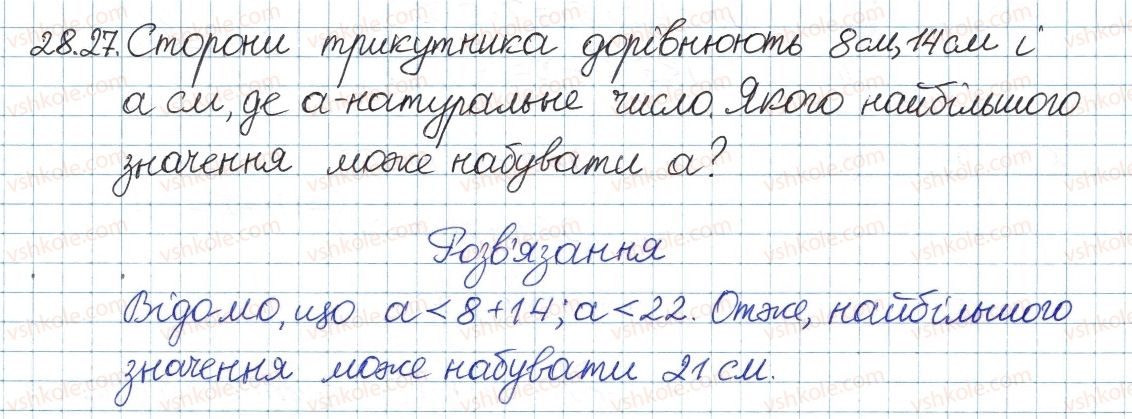 28.27. Сторони трикутника дорівнюють 8см, 14см і
а см, де а-натуральне число. Якого найбільшого
значення може набувати а?
Розв'язання
Відомо, що а < 8 + 14; а < 22. Отже, найбільшого
значення може набувати 21 см.